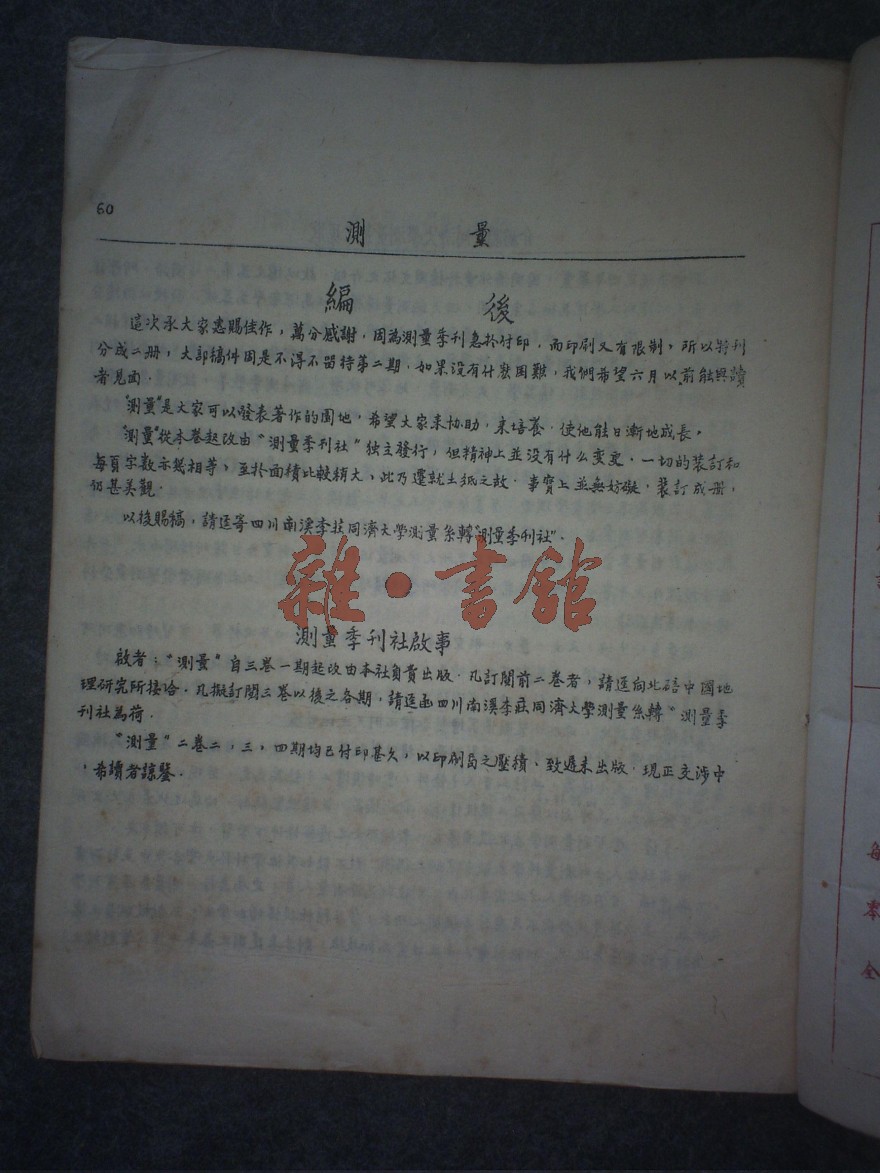 60
測 量
編 後
這次承大家惠賜佳作，萬分感謝，因為測量季刊急於付印，而印刷又有限制，所以特刊
分成二册，大部稿件因是不得不留待第二期．如果没有什麽困難，我們希望六月以前能與讀
者見面．
“測量”是大家可以發表著作的園地，希望大家来协助，来培養．使他能日漸地成長。
“測量”從本卷起改由“測量季刊社”独主發行，但精神上並没有什么变更．一切的裝訂和
每頁字数亦幾相等，至於面積比較稍大，此乃遷就土紙之故．事實上並無妨礙，裝訂成册，
仍甚美觀．
以後賜稿，請逕寄四川南溪李莊同濟大學測量系轉“測量季刊社”．
雜·書館
測量季刊社啟事
啟者：“測量”自三卷一期起改由本社負責出版．凡訂閱前二卷者，請逕向北碚中國地
理研究所接洽．凡擬訂閱三卷以後之各期，請逕函四川南溪李莊同濟大學測量系轉“測量季
刊社為荷．
“測量”二卷二，三，四期均已付印甚久，以印刷局之壓積、致遲未出版．現正交涉中
，希讀者諒鑒．
每
本
全